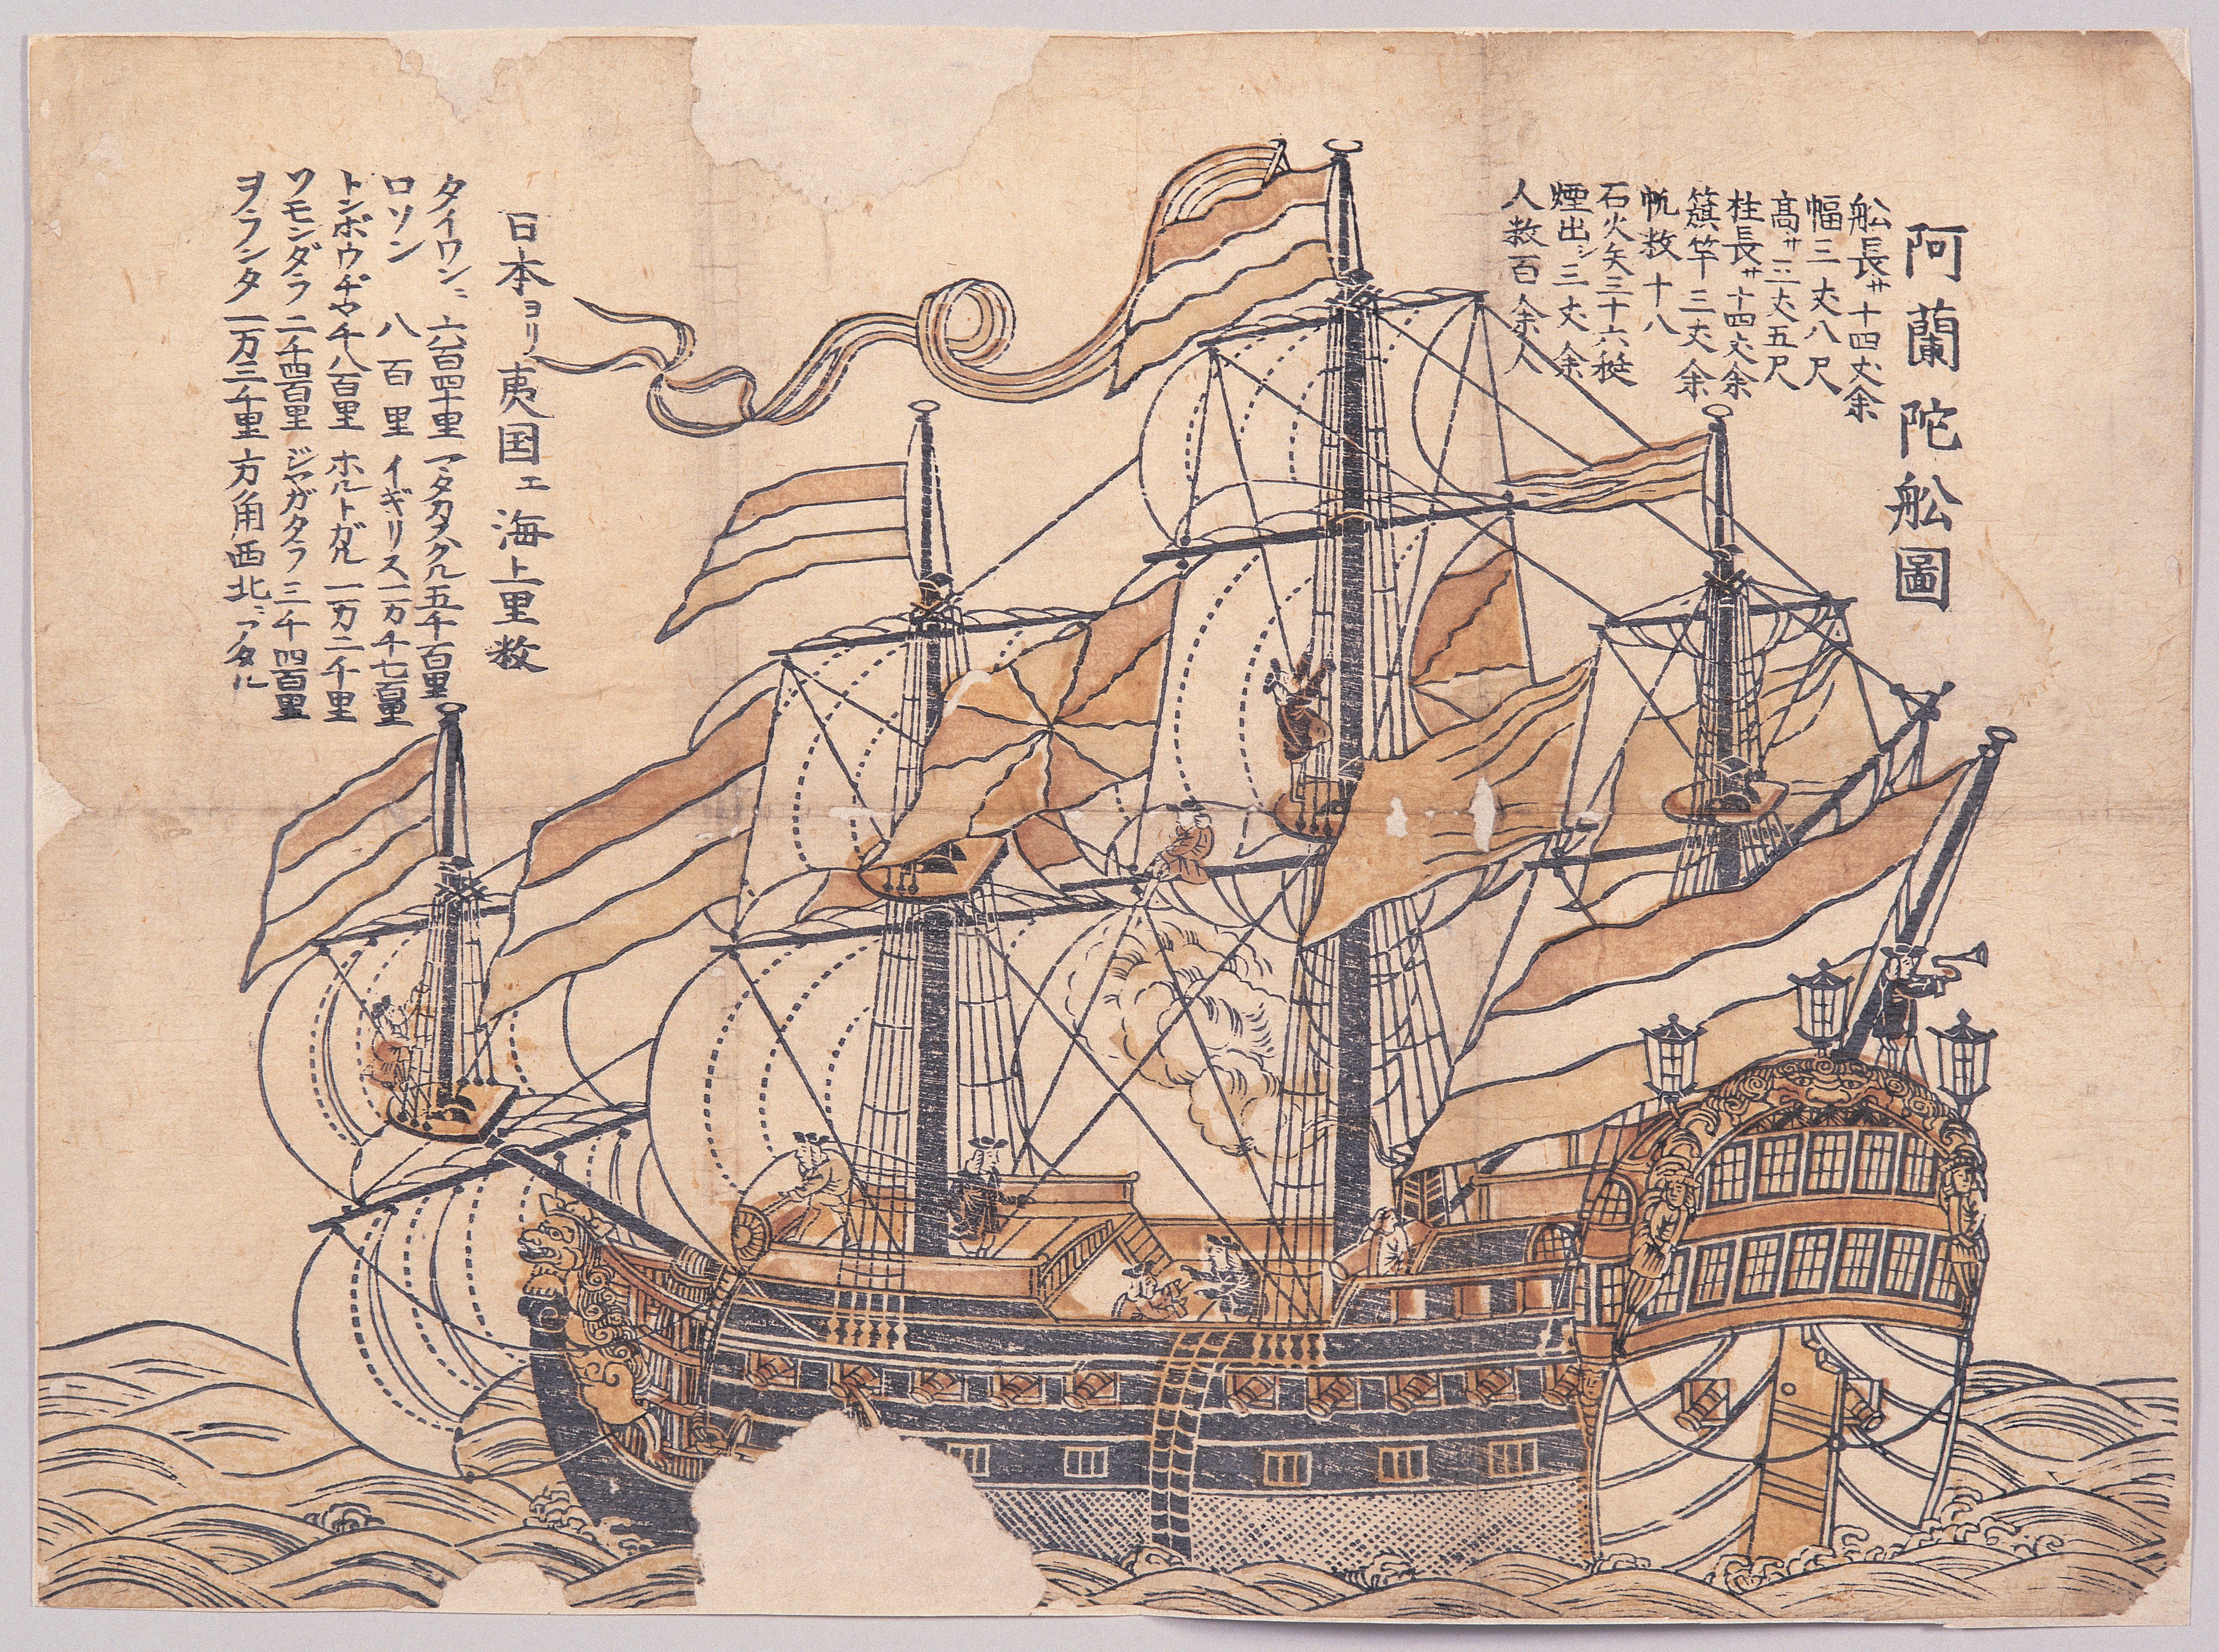 阿蘭陀舩圖
舩長サ十四丈余
幅三丈八尺
髙サ三丈五尺
柱長サ十四丈余
籏竿三丈余
帆数十八
石火矢三十六挺
煙出シ三丈余
人数百余人
日本ヨリ夷国エ海上里数
タイワンニ六百四十里 マタカタクル五千百里
ロソン 八百里 イギリス一万千七百里
トンボウチヤ千八百里 ホルトガル一万二千里
ソモンダラ二千四百里 ジヤガタラ三千四百里
ヲランタ一万三千里方角西北ニアタル